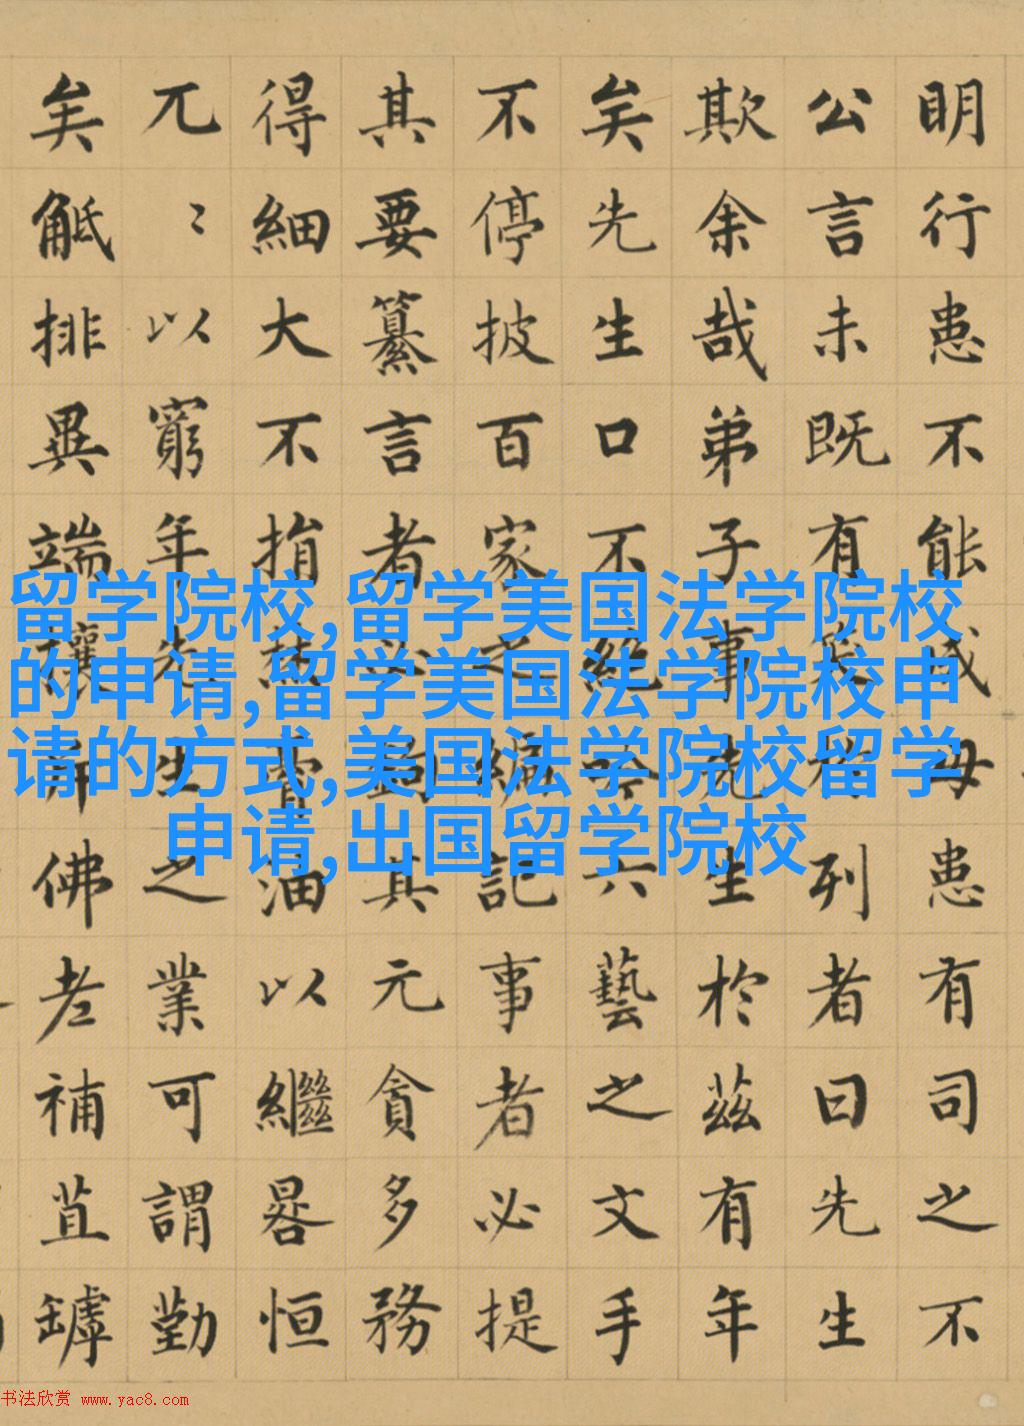 明行患不能成毋患有司之不
公言未既有笑於列者曰先生
欺余哉弟子事先生於茲有年
矣先生口不絕吟六藝之文手
不停披百家之編記事者必提
其要纂言者必鉤其元貪多務
得細大不捐焚膏油以繼晷恒
兀〻以窮年先生之業可謂勤
矣觝排異端攘斥佛老補苴罅
留学院校,留学美国法学院校
的申请,留学美国法学院校申
请的方式,美国法学院校留学
申请,出国留学院校
书法欣赏 www.yac8.com